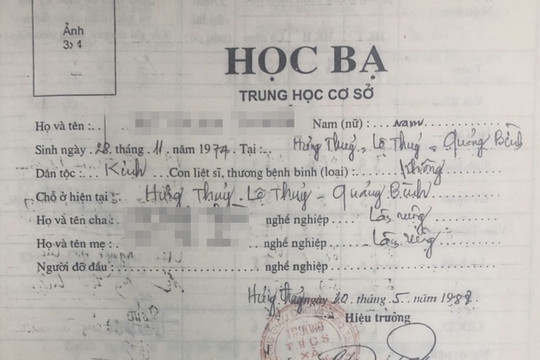 Ảnh
3x4
HỌC BẠ
TRUNG HỌC CƠ SỞ
Họ và tên: Nam (nữ): Nam
Sinh ngày 28 tháng 11 năm 1974 Tại: Hưng Thuỷ - Lệ Thuỷ - Quảng Bình
Dân tộc: Kinh Con liệt sĩ, thương bệnh binh (loại): Không
Chỗ ở hiện tại: Hưng Thuỷ - Lệ Thuỷ - Quảng Bình
Họ và tên cha: nghề nghiệp Làm ruộng
Họ và tên mẹ: nghề nghiệp Làm ruộng
Người đỡ đầu: nghề nghiệp
Hưng Thuỷ ngày 20 tháng 5 năm 1988
Hiệu trưởng
TRƯỜNG
THCS
XÃ